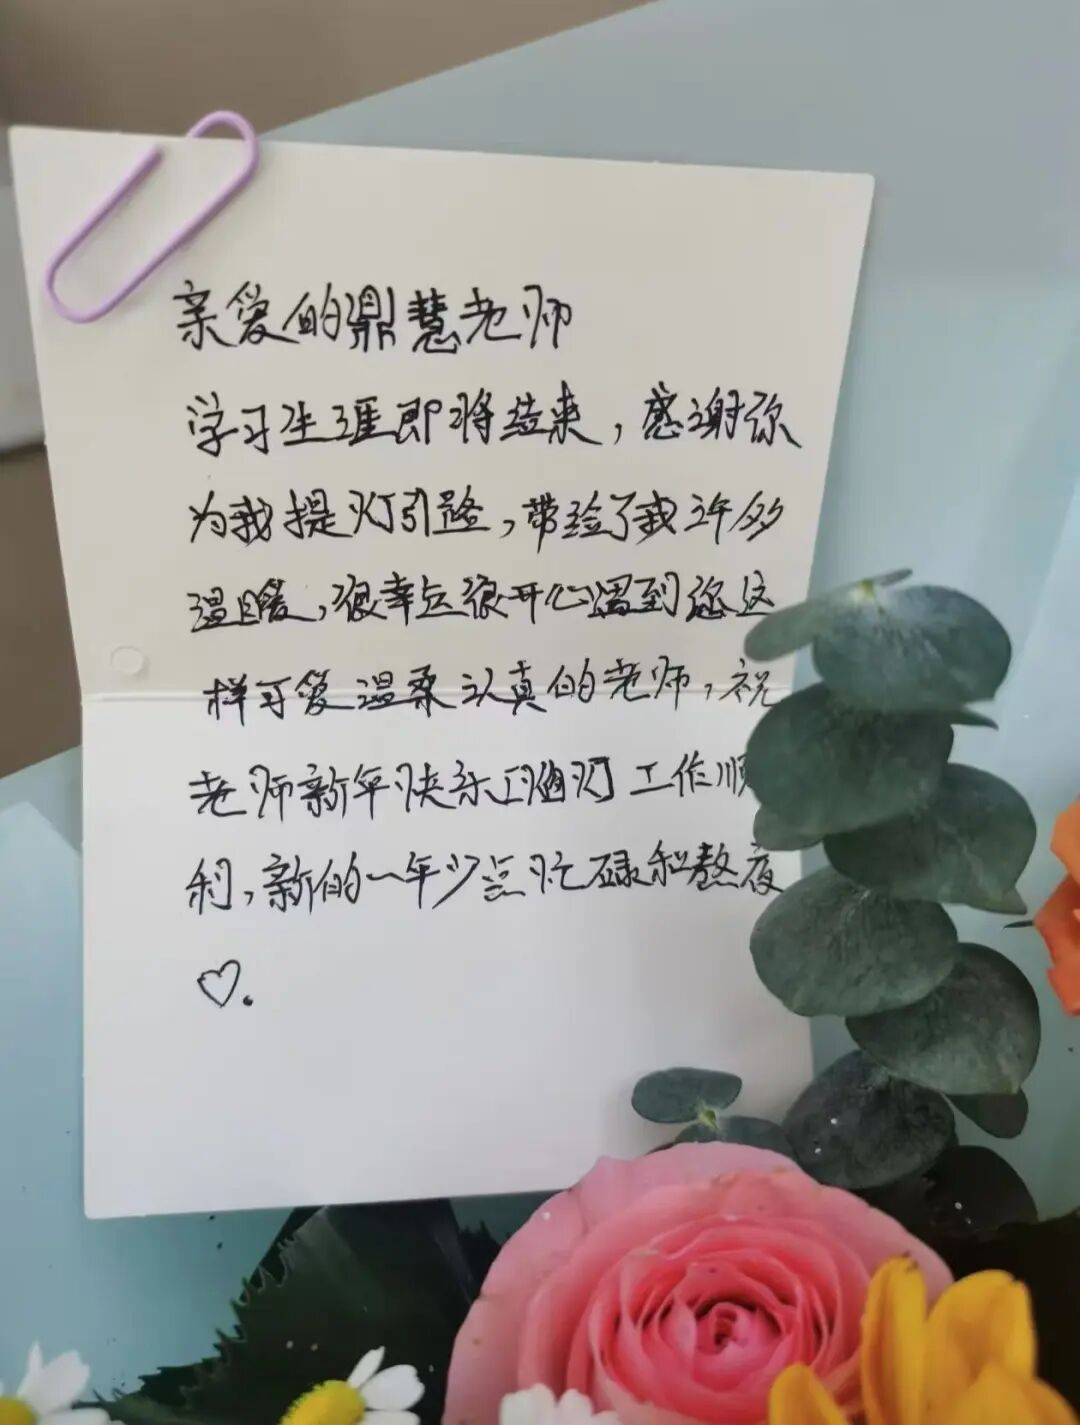 亲爱的鼎慧老师
学习生涯即将结束，感谢你
为我提灯引路，带给了我许多
温暖，很幸运很开心遇到您这
样可爱温柔认真的老师，祝
老师新年快乐 工作顺
利，新的一年少点忙碌和熬夜
♡.